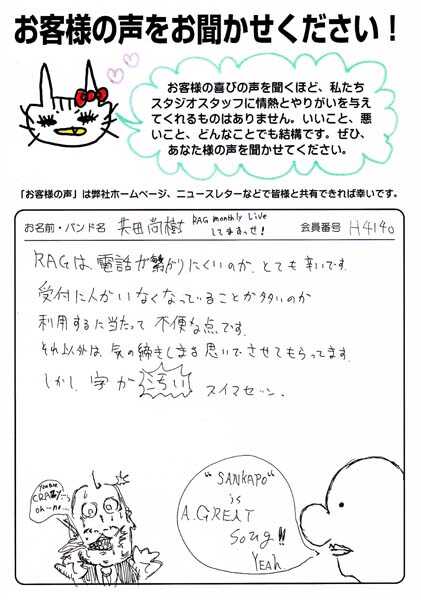 お客様の声をお聞かせください！
お客様の喜びの声を聞くほど、私たち
スタジオスタッフに情熱とやりがいを与え
てくれるものはありません。いいこと、悪
いこと、どんなことでも結構です。ぜひ、
あなた様の声を聞かせてください。
「お客様の声」は弊社ホームページ、ニュースレターなどで皆様と共有できれば幸いです。
お名前・バンド名 共田尚樹 RAG monthly Live
してまるっせ！
会員番号 H4140
RAGは、電話が繋がりにくいのが、とても辛いです。
受付に人がいなくなっていることが多いのが
利用するに当たって不便な点です。
それ以外は、気の締きしまる思いでさせてもらってます。
しかし、字が 汚い スイマセーン。
You are
CRAZY…
oh-no…
"SANKAPO"
is
A GREAT
Song!!
Yeah